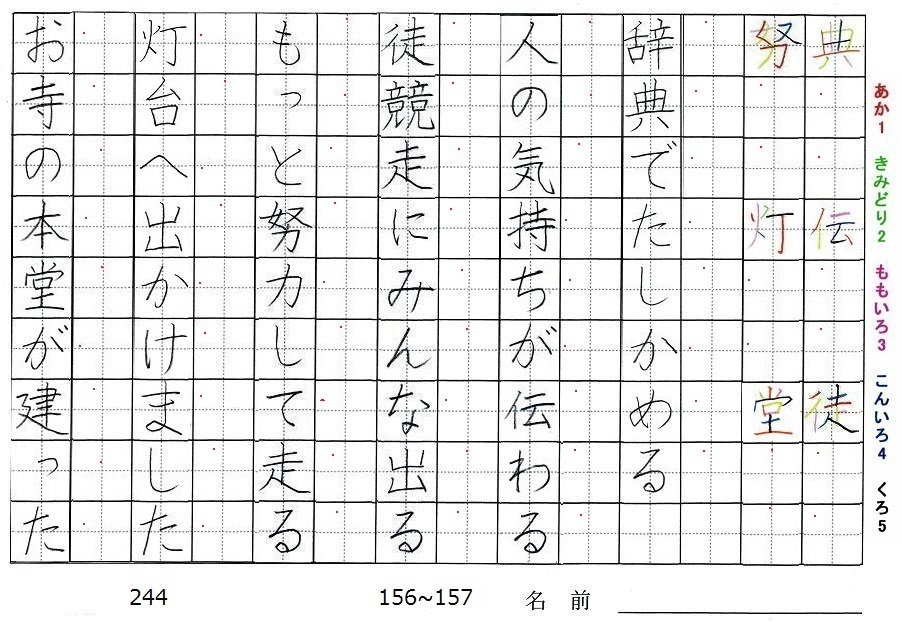 あか1 きみどり2 ももいろ3 こんいろ4 くろ5
典 伝 徒
努 灯 堂
辞典でたしかめる
人の気持ちが伝わる
徒競走にみんな出る
もっと努力して走る
灯台へ出かけました
お寺の本堂が建った
244 156~157 名前